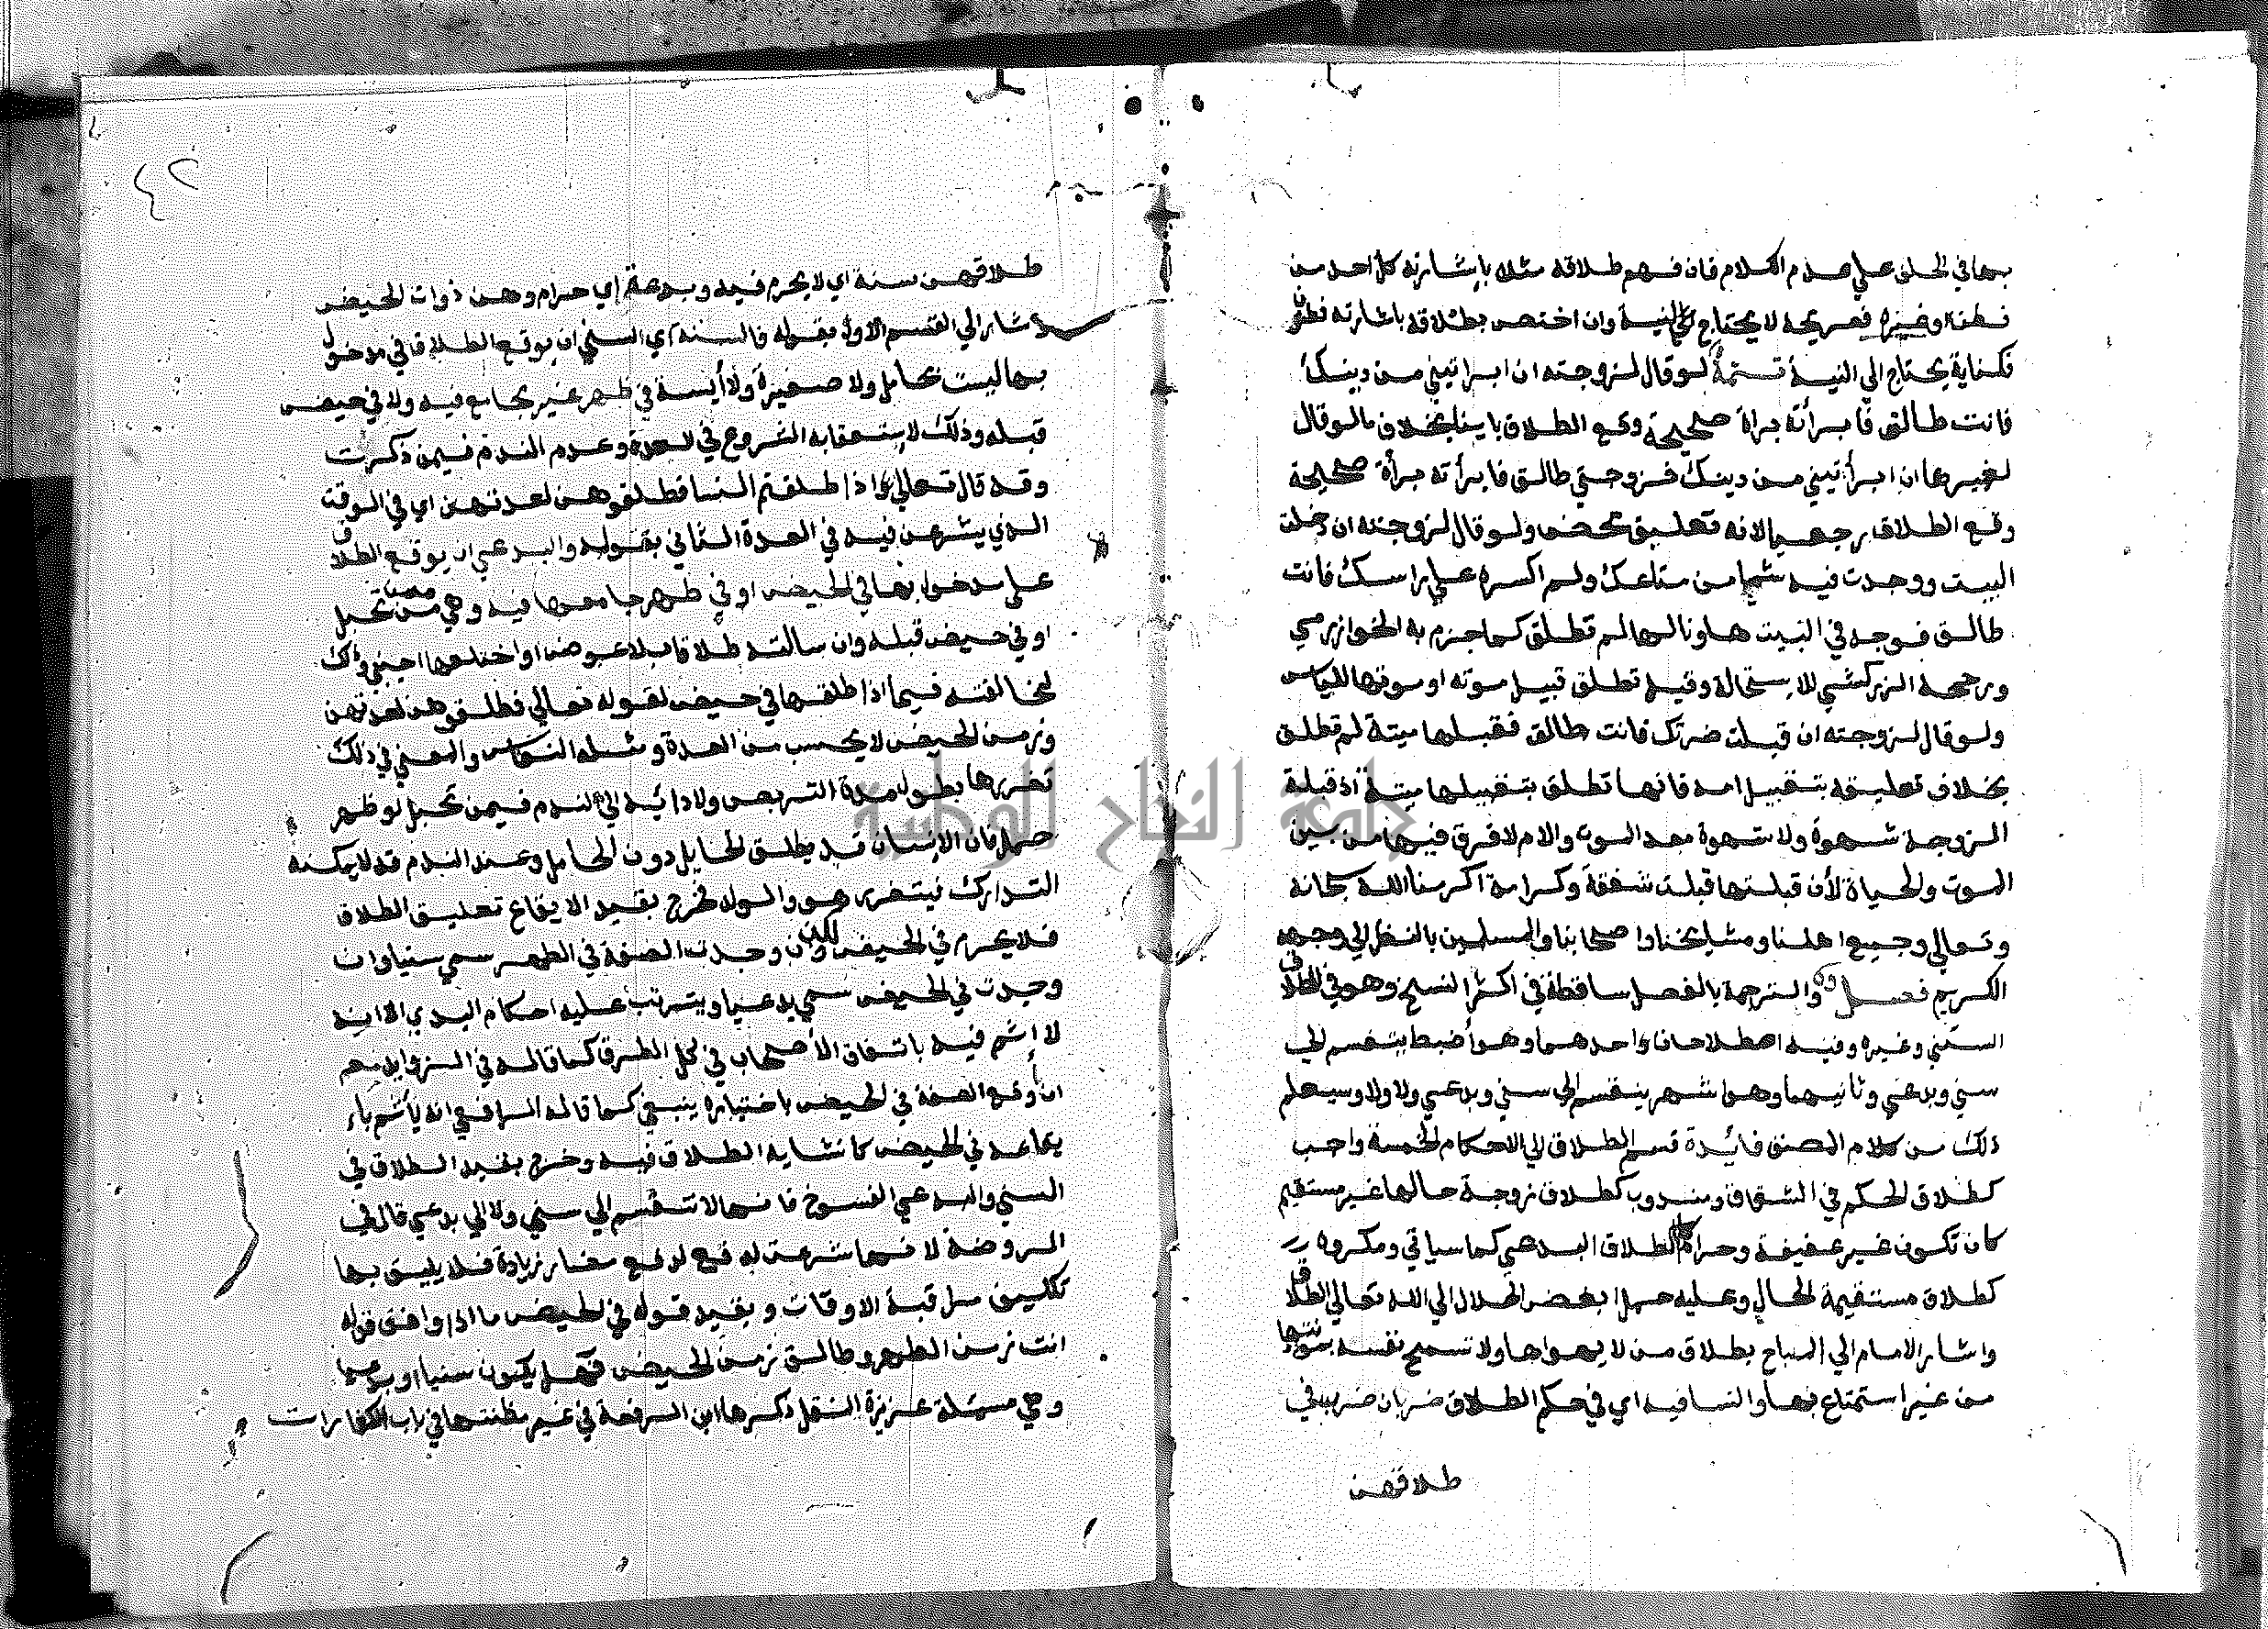 بها في الحلق على عدم الكلام فان فهم طلاقه مثلا باشارته كل احد من
فطن او غيره فصريحه لا يحتاج الي النية وان اختص بطلاقه باشارته فطن
فكناية يحتاج الي النية تتمة لو قال لزوجته ان ابراتيني من دينك
فانت طالق فابرأته براة صحيحة وقع الطلاق باينا بخلاف ما لو قال
لغيرها ان ابرأتيني من دينك فزوجتي طالق فابرأته برأة صحيحة
وقع الطلاق رجعيا لانه تعليق محض ولو قال لزوجته ان دخلت
البيت ووجدت فيه شيا من متاعك ولم اكسره على راسك فانت
طالق فوجد في البيت هاونا لها لم تطلق كما جزم به الخوارزمي
ورجحه الزركشي للاستحالة وقيل تطلق قبيل موته او موتها لليأس
ولو قال لزوجته ان قبلت ضرتك فانت طالق فقبلها ميتة لم تطلق
بخلاف تعليقه بتقبيل امه فانها تطلق بتقبيلها ميتة اذ قبلة
الزوجة شهوة ولا شهوة بعد الموت والام لا فرق فيها من بين
الموت والحياة لأن قبلتها قبلت شفقة وكرامة اكرمنا الله سبحانه
وتعالي وجميع اهلنا ومشايخنا واصحابنا والمسلمين بالنظر الي وجهه
الكريم فصل والترجمة بالفصل ساقطة في اكثر النسخ وهو في الطلاق
السني وغيره وفيه اصطلاحان احدهما وهو أضبط ينقسم الي
سني وبدعي وثانيهما وهو اشهر ينقسم الي سني وبدعي ولا ولا وسيعلم
ذلك من كلام المصنف فائدة قسم الطلاق الي الاحكام الخمسة واجب
كطلاق الحكم في الشقاق ومندوب كطلاق زوجة حالها غير مستقيم
كان تكون غير عفيفة وحرام كالطلاق البدعي كما سياتي ومكروه
كطلاق مستقيمة الحال وعليه حمل ابغض الحلال الي الله تعالي الطلاق
واشار الامام الي المباح بطلاق من لا يهواها ولا تسمح نفسه بموئنتها
من غير استمتاع بها والنسا فيه اي في حكم الطلاق ضربان ضرب في
طلاقهن
٤٢
طلاقهن سنة اي لا يحرم فيه وبدعة اي حرام وهن ذوات الحيض
واشار الي القسم الاول بقوله فالسنة اي السني ان يوقع الطلاق في مدخول
بها ليست بحامل ولا صغيرة ولا أيسة في طهر غير مجامع فيه ولا في حيض
قبله وذلك لاستعقابه الشروع في العدة وعدم الندم فيمن ذكرت
وقد قال تعالي اذا طلقتم النسا فطلقوهن لعدتهن اي في الوقت
الذي يشرعن فيه في العدة الثاني بقوله والبدعي ان يوقع الطلاق
على مدخول بها في الحيض او في طهر جامعها فيه وهي ممن تحبل
او في حيض قبله وان سالته طلاقا بلا عوض او اختلعها اجنبي وذلك
لمخالفته فيما اذا طلقها في حيض لقوله تعالي فطلقوهن لعدتهن
وزمن الحيض لا يحسب من العدة ومثله النفاس والمعني في ذلك
تضررها بطول مدة التربص ولادائه الي الندم فيمن تحبل لو ظهر
حمل فان الانسان قد يطلق الحايل دون الحامل وعند الندم قد لا يمكنه
التدارك فيتضرر هو والولد فخرج بقيد الايقاع تعليق الطلاق
فلا يحرم في الحيض لكن ان وجدت الصفة في الطهر سمي سنيا وان
وجدت في الحيض سمي بدعيا ويترتب عليه احكام البدعي الا انه
لا إثم فيه باتفاق الأصحاب في كل الطرق كما قاله في الزوايد نعم
ان أوقع الصفة في الحيض باختياره ينبغي كما قاله الرافعي انه يأثم بايـ
ـقاعه في الحيض كانشايه الطلاق فيه وخرج بقيد الطلاق في
السني والبدعي الفسوخ فانها لا تنقسم الي سني ولا الي بدعي قال في
الروضة لانها شرعت لدفع مضار نادرة فلا يليق بها
تكليف مراقبة الاوقات وبقيد قوله في الحيض ما اذا وافق قوله
انت زمن الطهر وطالق زمن الحيض فهل يكون سنيا او بدعيا
وهي مسئلة عزيزة النقل ذكرها ابن الرفعة في غير مظنتها في باب الكفارات
جامعة النجاح الوطنية